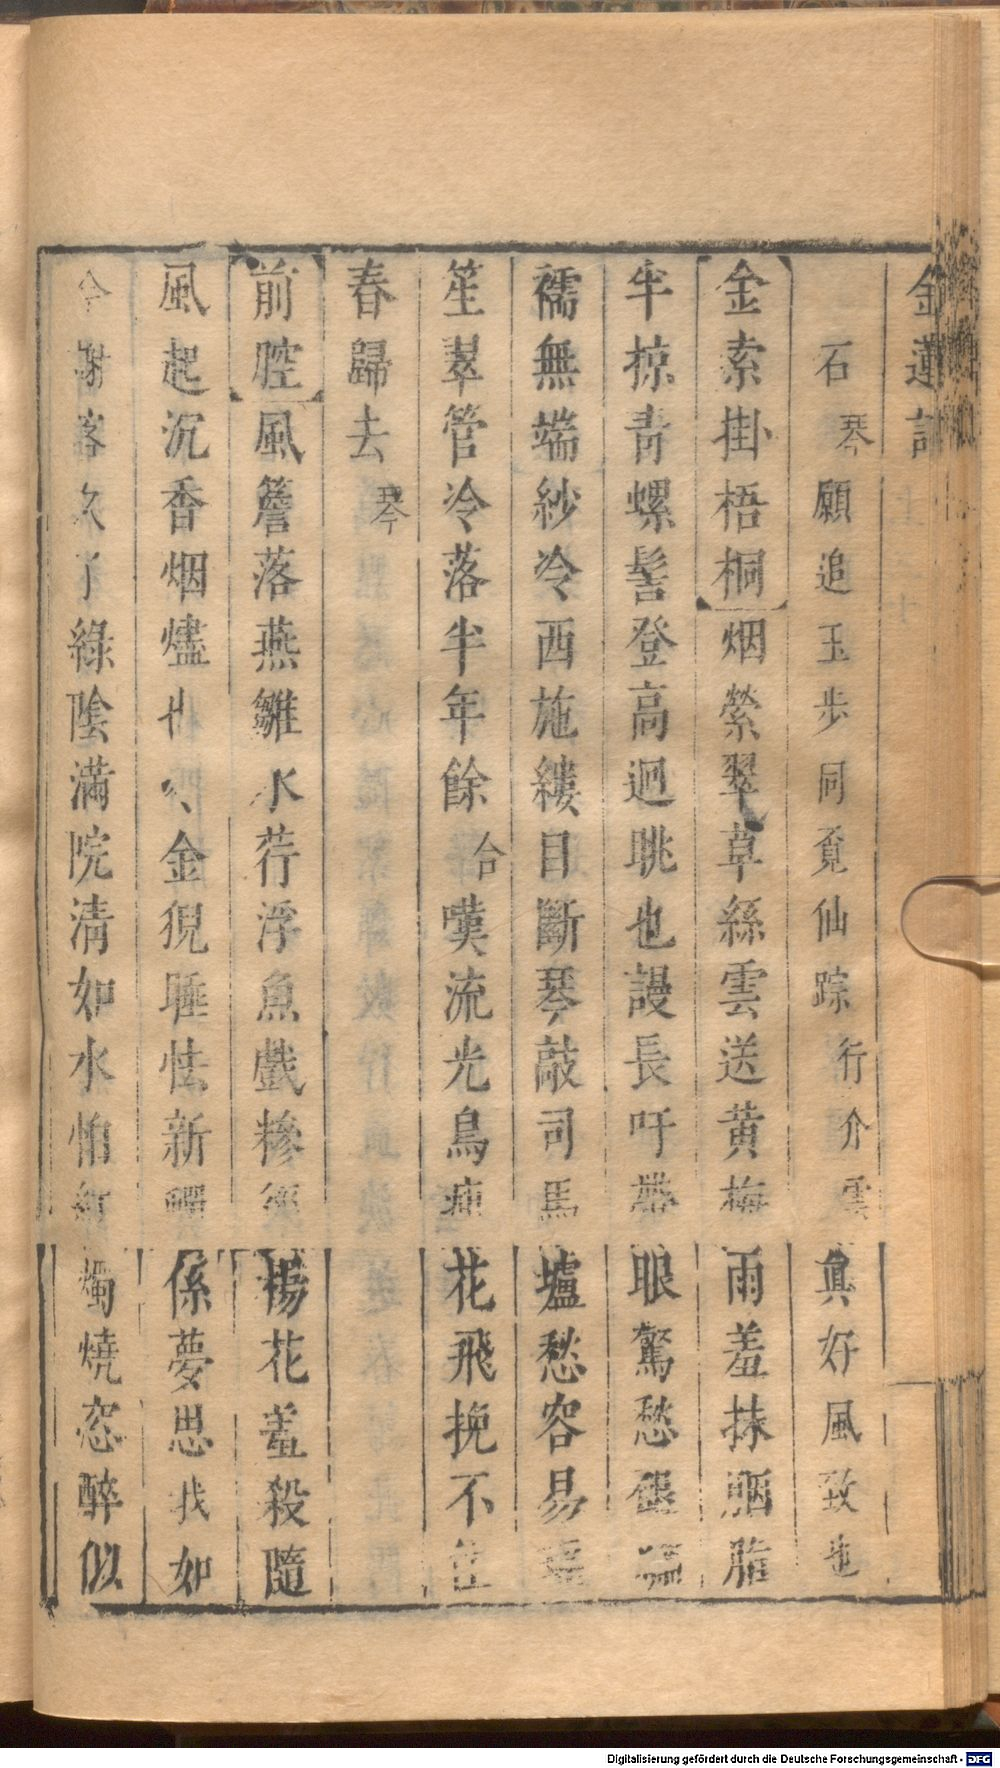 金蓮記
石琴願追玉步同覓仙踪行介雲真好風致也
金索掛梧桐烟縈翠草絲雲送黃梅雨羞抹胭脂
半掠青螺髻登高迥眺也謾長吁眼驚愁
襦無端紗冷西施縷目斷琴敲司馬壚愁容易
笙翠管冷落半年餘合嘆流光烏兎花飛挽不住
春歸去琴
前腔風簷落燕雛水荇浮魚戲糝徑楊花羞殺隨
風起沉香烟燼也金猊睡怯新係夢思我如
今謝落久了綠陰滿院清如水怕紅燭燒恣醉似
Digitalisierung gefördert durch die Deutsche Forschungsgemeinschaft - DFG